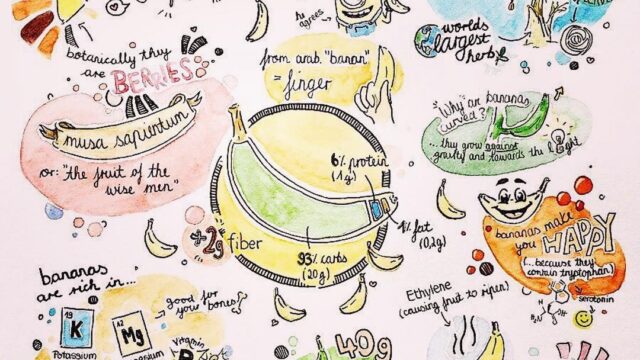 he agrees
botanically they
are BERRIES
from arab. "banan"
= finger
worlds
largest
herb
musa sapientum
or: "the fruit of the
wise men"
Why are bananas
curved?
...they grow against
gravity and towards the light
6% protein
(1g)
1% fat
(0,2g)
93% carbs
(20g)
+2g fiber
bananas make
you HAPPY
(...because they
contain tryptophan)
serotonin
H₂N
bananas
are rich in...
good for
your bones!
K
Potassium
12
Mg
Vitamin
B
Ethylene
(causing fruit to ripen)
40g